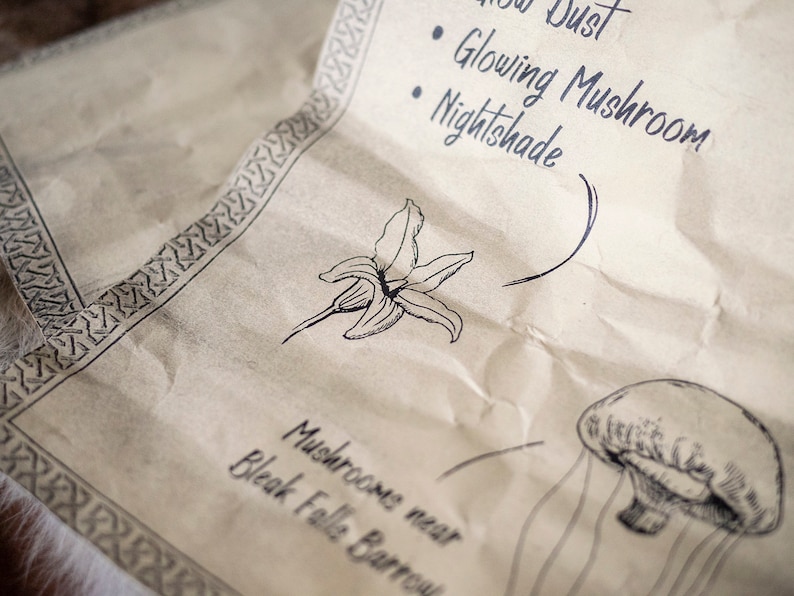 Dust
• Glowing Mushroom
• Nightshade
Mushrooms near
Bleak Falls Barrow